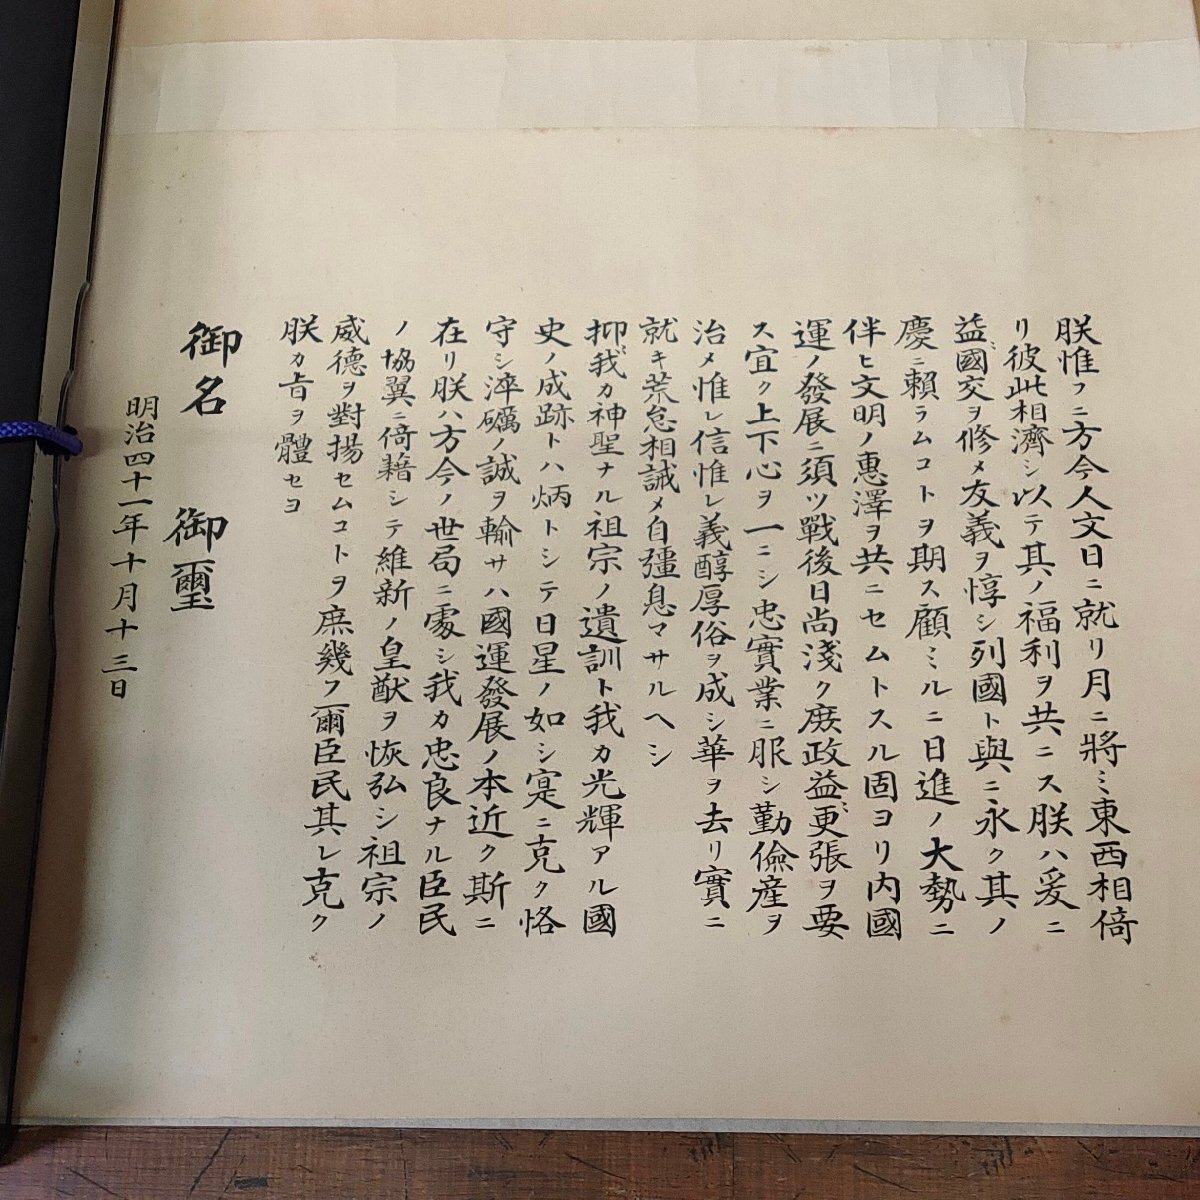 朕惟フニ方今人文日ニ就リ月ニ將ミ東西相倚
リ彼此相濟シ以テ其ノ福利ヲ共ニス朕ハ爰ニ
益〻國交ヲ修メ友義ヲ惇シ列國ト與ニ永ク其ノ
慶ニ賴ラムコトヲ期ス顧ミルニ日進ノ大勢ニ
伴ヒ文明ノ惠澤ヲ共ニセムトスル固ヨリ內國
運ノ發展ニ須ツ戰後日尚淺ク庶政益〻更張ヲ要
ス宜ク上下心ヲ一ニシ忠實業ニ服シ勤儉産ヲ
治メ惟レ信惟レ義醇厚俗ヲ成シ華ヲ去リ實ニ
就キ荒怠相誡メ自彊息マサルヘシ
抑〻我カ神聖ナル祖宗ノ遺訓ト我カ光輝アル國
史ノ成跡トハ炳トシテ日星ノ如シ寔ニ克ク恪
守シ淬礪ノ誠ヲ輸サハ國運發展ノ本近ク斯ニ
在リ朕ハ方今ノ世局ニ處シ我カ忠良ナル臣民
ノ協翼ニ倚藉シテ維新ノ皇猷ヲ恢弘シ祖宗ノ
威德ヲ對揚セムコトヲ庶幾フ爾臣民其レ克ク
朕カ旨ヲ體セヨ
御名 御璽
明治四十一年十月十三日